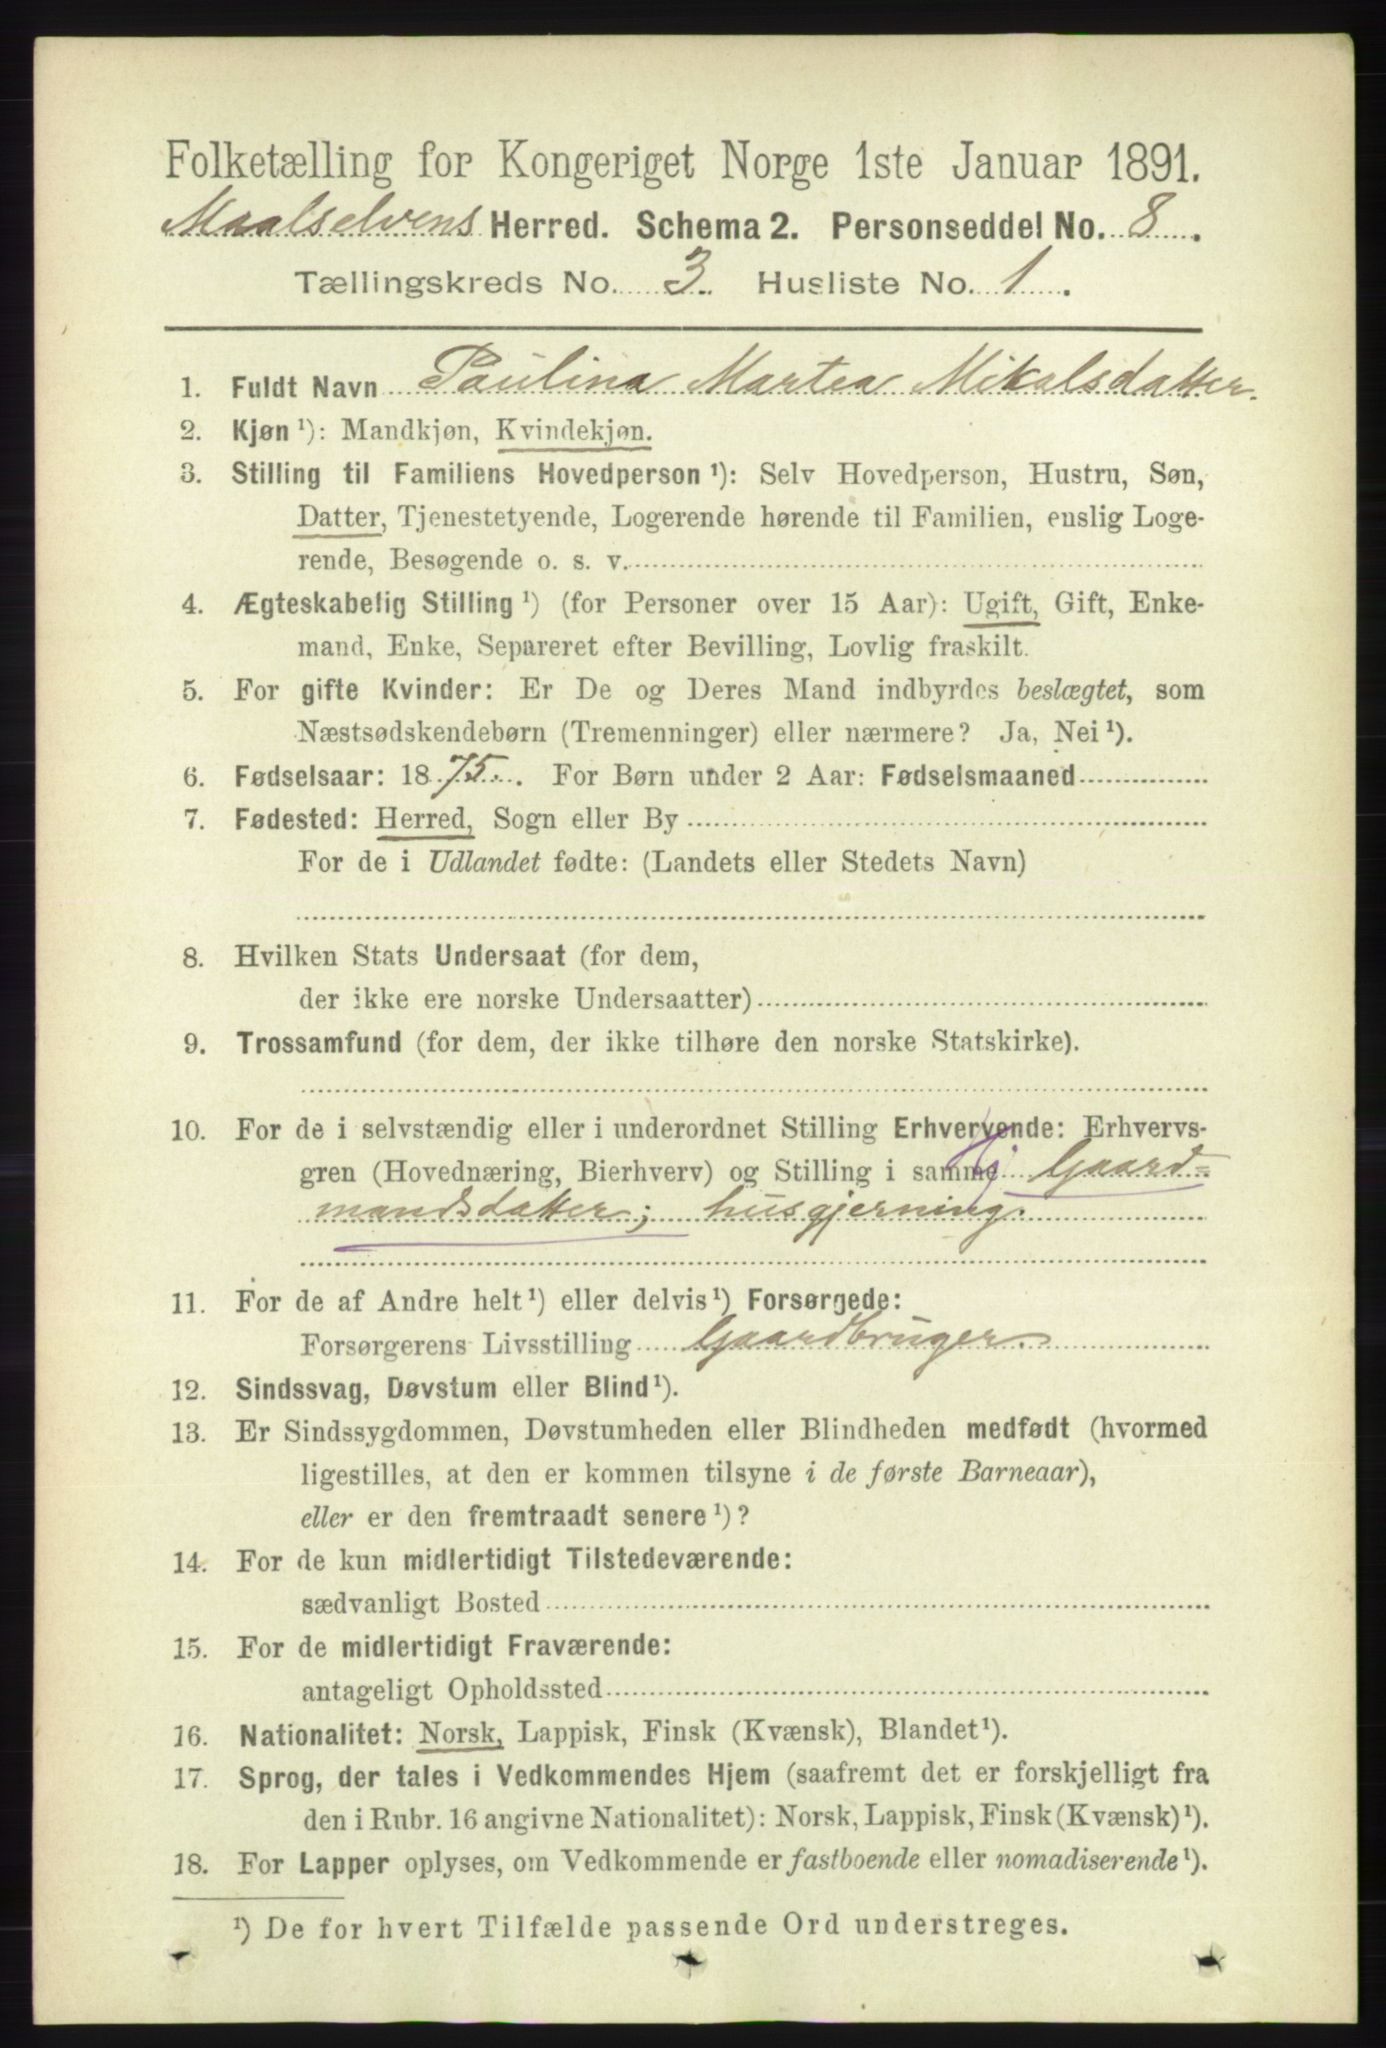 Folketælling for Kongeriget Norge 1ste Januar 1891.
Maalselvens Herred. Schema 2. Personseddel No. 8.
Tællingskreds No. 3. Husliste No. 1.
1. Fuldt Navn Paulina Martea Mikalsdatter.
2. Kjøn ¹): Mandkjøn, Kvindekjøn.
3. Stilling til Familiens Hovedperson ¹): Selv Hovedperson, Hustru, Søn,
Datter, Tjenestetyende, Logerende hørende til Familien, enslig Loge-
rende, Besøgende o. s. v.
4. Ægteskabelig Stilling ¹) (for Personer over 15 Aar): Ugift, Gift, Enke-
mand, Enke, Separeret efter Bevilling, Lovlig fraskilt.
5. For gifte Kvinder: Er De og Deres Mand indbyrdes beslægtet, som
Næstsødskendebørn (Tremenninger) eller nærmere? Ja, Nei ¹).
6. Fødselsaar: 1875. For Børn under 2 Aar: Fødselsmaaned
7. Fødested: Herred, Sogn eller By
For de i Udlandet fødte: (Landets eller Stedets Navn)
8. Hvilken Stats Undersaat (for dem,
der ikke ere norske Undersaatter)
9. Trossamfund (for dem, der ikke tilhøre den norske Statskirke).
10. For de i selvstændig eller i underordnet Stilling Erhvervende: Erhvervs-
gren (Hovednæring, Bierhverv) og Stilling i samme Gaard=
mandsdatter; husgjerning.
11. For de af Andre helt ¹) eller delvis ¹) Forsørgede:
Forsørgerens Livsstilling Gaardbruger.
12. Sindssvag, Døvstum eller Blind ¹).
13. Er Sindssygdommen, Døvstumheden eller Blindheden medfødt (hvormed
ligestilles, at den er kommen tilsyne i de første Barneaar),
eller er den fremtraadt senere ¹)?
14. For de kun midlertidigt Tilstedeværende:
sædvanligt Bosted
15. For de midlertidigt Fraværende:
antageligt Opholdssted
16. Nationalitet: Norsk, Lappisk, Finsk (Kvænsk), Blandet ¹).
17. Sprog, der tales i Vedkommendes Hjem (saafremt det er forskjelligt fra
den i Rubr. 16 angivne Nationalitet): Norsk, Lappisk, Finsk (Kvænsk) ¹).
18. For Lapper oplyses, om Vedkommende er fastboende eller nomadiserende ¹).
¹) De for hvert Tilfælde passende Ord understreges.